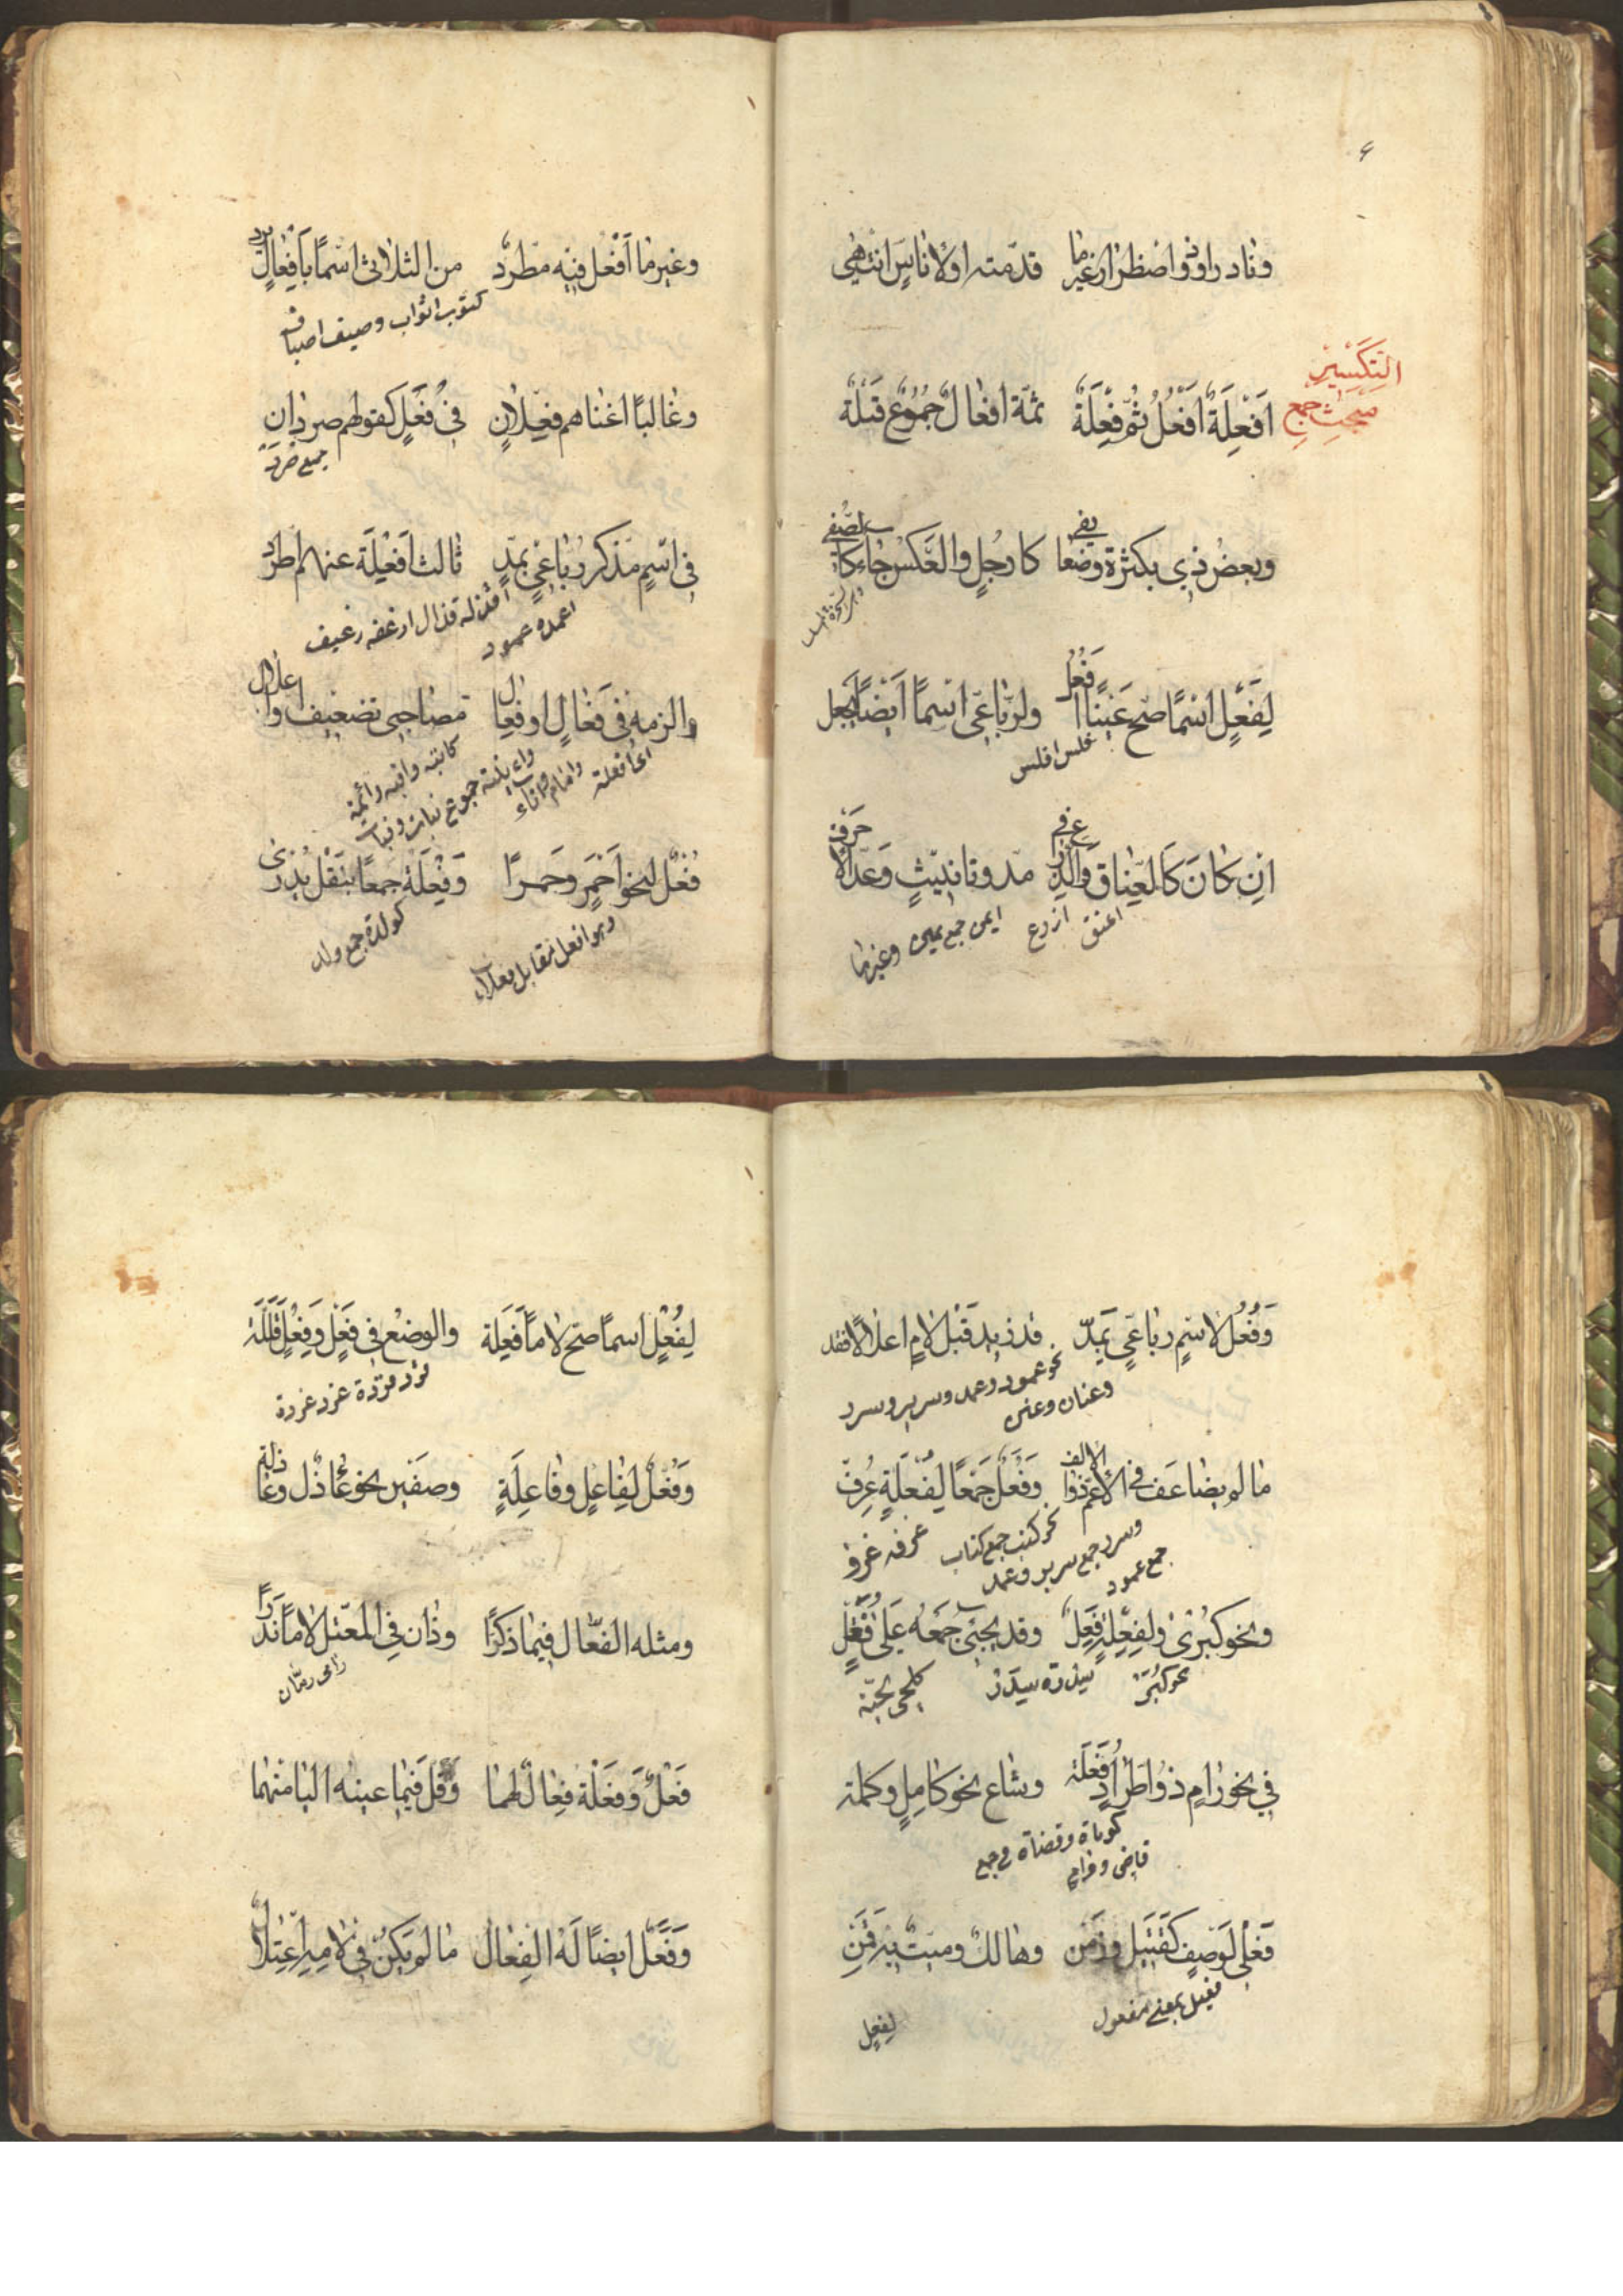 ونادر او ذو اضطرار غير ما قدّمته او لاناس انتمى
مبحث جمع التكسير
اَفْعِلَةٌ اَفْعُلُ ثُمَّ فِعْلَةٌ ثمّة افعالٌ جُمُوْعُ قِلّة
وبعضُ ذي بكثرة وضعا يفي كارجُلٍ والعكس جاء كالصّفي
لِفَعْلٍ اسْمًا صحّ عَيْنًا اَفْعُلُ ولرّباعيّ اسمًا اَيْضًا يُجعل
فلس افلس
اِن كانَ كَالعَناق والذّراع في مدّ وتانيثٍ وعدّ الاحرف
اعنق اذرع ايمن جمع يمين وغيرها
وغير ما اَفْعُل فيه مطّردٌ من الثلاثي اسمًا بأفعالٍ يرد
كثوب اثواب وصيف اصياف
وغالبًا اغناهم فِعْلانٌ في فُعَلٍ كقولهم صردان
جمع صُرَد
في اسمٍ مذكّر رباعيّ بمدّ ثالث اَفْعِلَة عنهم اطّرد
اقذلة قذال ارغفه رغيف
اعمدة عمود
والزمه في فَعال او فِعال مصاحبي تضعيف او اعلال
اي افعلة وامام واناء
فُعْلٌ لنحو اَحْمَر وحَمرا وَفِعْلَة جمعًا بنَقْل يُدرى
كولدة جمع ولد
وهو افعل مقابل فعلاء
وَفُعُلٌ لاسْمٍ رباعيّ بمَدّ قد زيد قَبْل لامٍ اعلالًا فقد
نحو عمود وعمد وسرير وسرر
وعنان وعنن
ما لم يضاعَف في الاعمّ ذو الالف وَفُعَلٌ جَمْعًا لِفُعْلَةٍ عُرِف
نحو كتب جمع كتاب غرفه غرف
وسرر جمع سرير وعمد
جمع عمود
ونحو كُبْرى ولِفِعْلَة فِعَلٌ وقد يجيء جَمْعُه عَلى فُعَلٍ
نحو كُبَر سِدْرة سِدَر كلحى لحية
في نحو رامٍ ذو اطّرادٍ فُعَلَة وشاع نحو كامِلٍ وكملة
كرماة وقضاة في جمع
قاضي ورامٍ
فَعْلى لوَصفٍ كقَتيل وزَمِن وهالكٌ وميّتٌ به قَمِن
فعيل بمعنى مفعول
لِفُعْلٍ
لِفُعْلٍ اسمًا صحّ لامًا فِعَلة والوضعُ في فَعْلٍ وفِعْلٍ قَلّله
قرد قردة غرد غردة
وَفُعَّلٌ لِفاعِلٍ وفاعِلَةٍ وصفين نحو عاذل وعاذلة
ومثله الفعّال فيما ذكّرا وذان في المعتلّ لامًا نَدَرا
فَعْلٌ وَفَعْلَةٌ فِعالٌ لهما وقلّ فيما عينه اليا منهما
وَفَعَلٌ ايضًا لَهُ الفِعال ما لم يكن في لامِه اعتلال